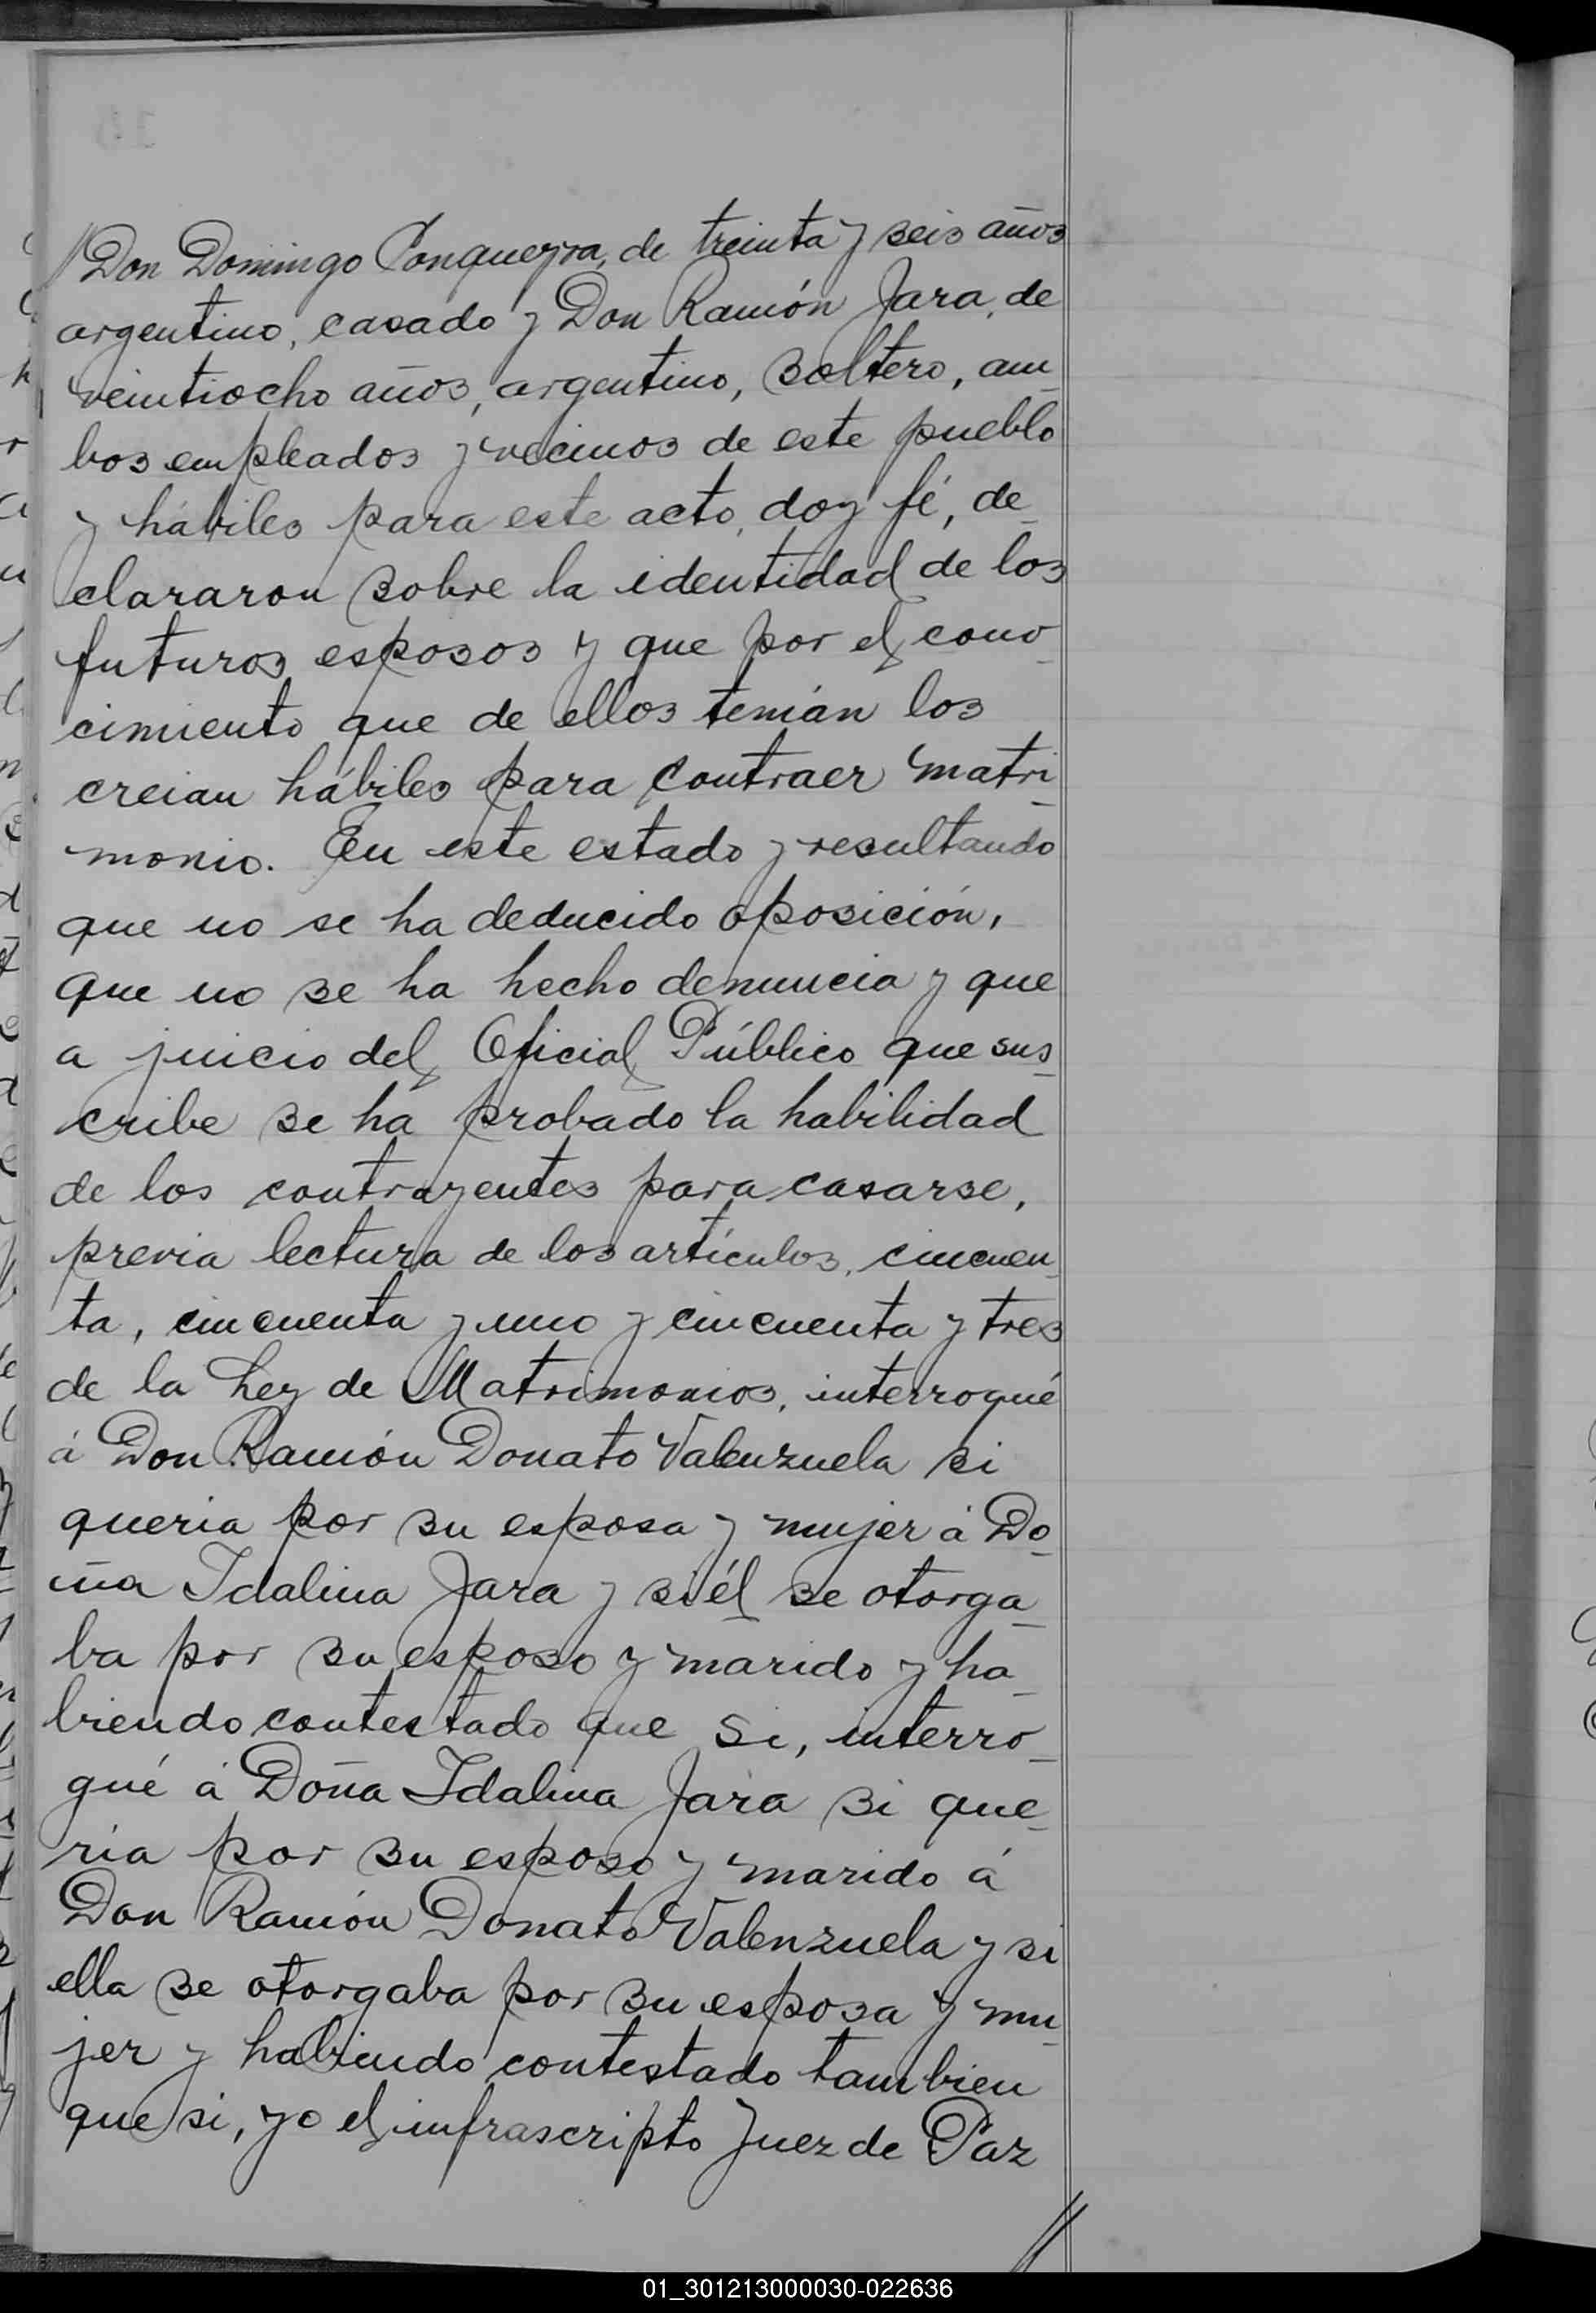 // Don Domingo Conqueyra, de treinta y seis años
argentino, casado y Don Ramón Jara, de
veintiocho años, argentino, soltero, am_
bos empleados y vecinos de este pueblo
y hábiles para este acto, doy fé, de_
clararon sobre la identidad de los
futuros esposos y que por el cono_
cimiento que de ellos tenián los
creian hábiles para contraer matri_
monio. En este estado y resultando
que no se ha deducido oposición,
que no se ha hecho denuncia y que
a juicio del Oficial Público que sus_
cribe se ha probado la habilidad
de los contrayentes para casarse,
previa lectura de los artículos, cincuen_
ta, cincuenta y uno y cincuenta y tres
de la Ley de Matrimonios, interrogué
á Don Ramón Donato Valenzuela si
queria por su esposa y mujer á Do_
ña Idalina Jara y si él se otorga_
ba por su esposo y marido y ha_
biendo contestado que si, interro_
gué á Doña Idalina Jara si que_
ria por su esposo y marido á
Don Ramón Donato Valenzuela y si
ella se otorgaba por su esposa y mu_
jer y habiendo contestado tambien
que si, yo el infrascripto Juez de Paz
//
01_301213000030-022636